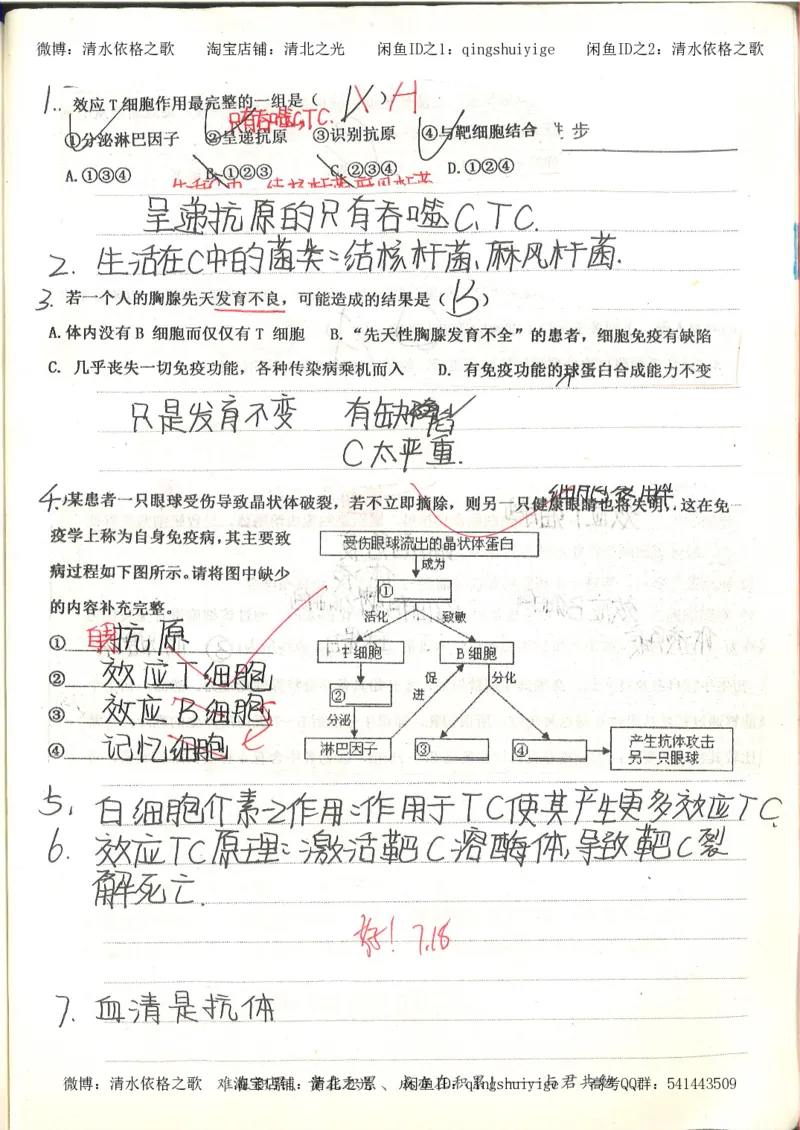 微博：清水依格之歌 淘宝店铺：清北之光 闲鱼ID之1：qingshuiyige 闲鱼ID之2：清水依格之歌
1.. 效应T细胞作用最完整的一组是（ ）A
只有吞噬C,TC.
①分泌淋巴因子 ②呈递抗原 ③识别抗原 ④与靶细胞结合 进步
A.①③④ B.①②③ C.②③④ D.①②④
呈递抗原的只有吞噬C,TC.
2. 生活在C中的菌类：结核杆菌、麻风杆菌.
3. 若一个人的胸腺先天发育不良，可能造成的结果是（B）
A.体内没有B 细胞而仅仅有T 细胞 B.“先天性胸腺发育不全”的患者，细胞免疫有缺陷
C. 几乎丧失一切免疫功能，各种传染病乘机而入 D. 有免疫功能的球蛋白合成能力不变
只是发育不变 有缺陷
C太严重.
4.某患者一只眼球受伤导致晶状体破裂，若不立即摘除，则另一只健康眼睛也将失明，这在免
疫学上称为自身免疫病，其主要致
病过程如下图所示。请将图中缺少
的内容补充完整。
受伤眼球流出的晶状体蛋白
成为
①
活化 致敏
T细胞 B细胞
促进 分化
②
分泌
淋巴因子 ③ ④ 产生抗体攻击另一只眼球
① 抗原
② 效应T细胞
③ 效应B细胞
④ 记忆细胞
5. 白细胞介素之作用：作用于TC使其产生更多效应TC.
6. 效应TC原理：激活靶C溶酶体，导致靶C裂
解死亡.
好！7.18
7. 血清是抗体
微博：清水依格之歌 淘宝店铺：清北之光 闲鱼ID：qingshuiyige 高考QQ群：541443509